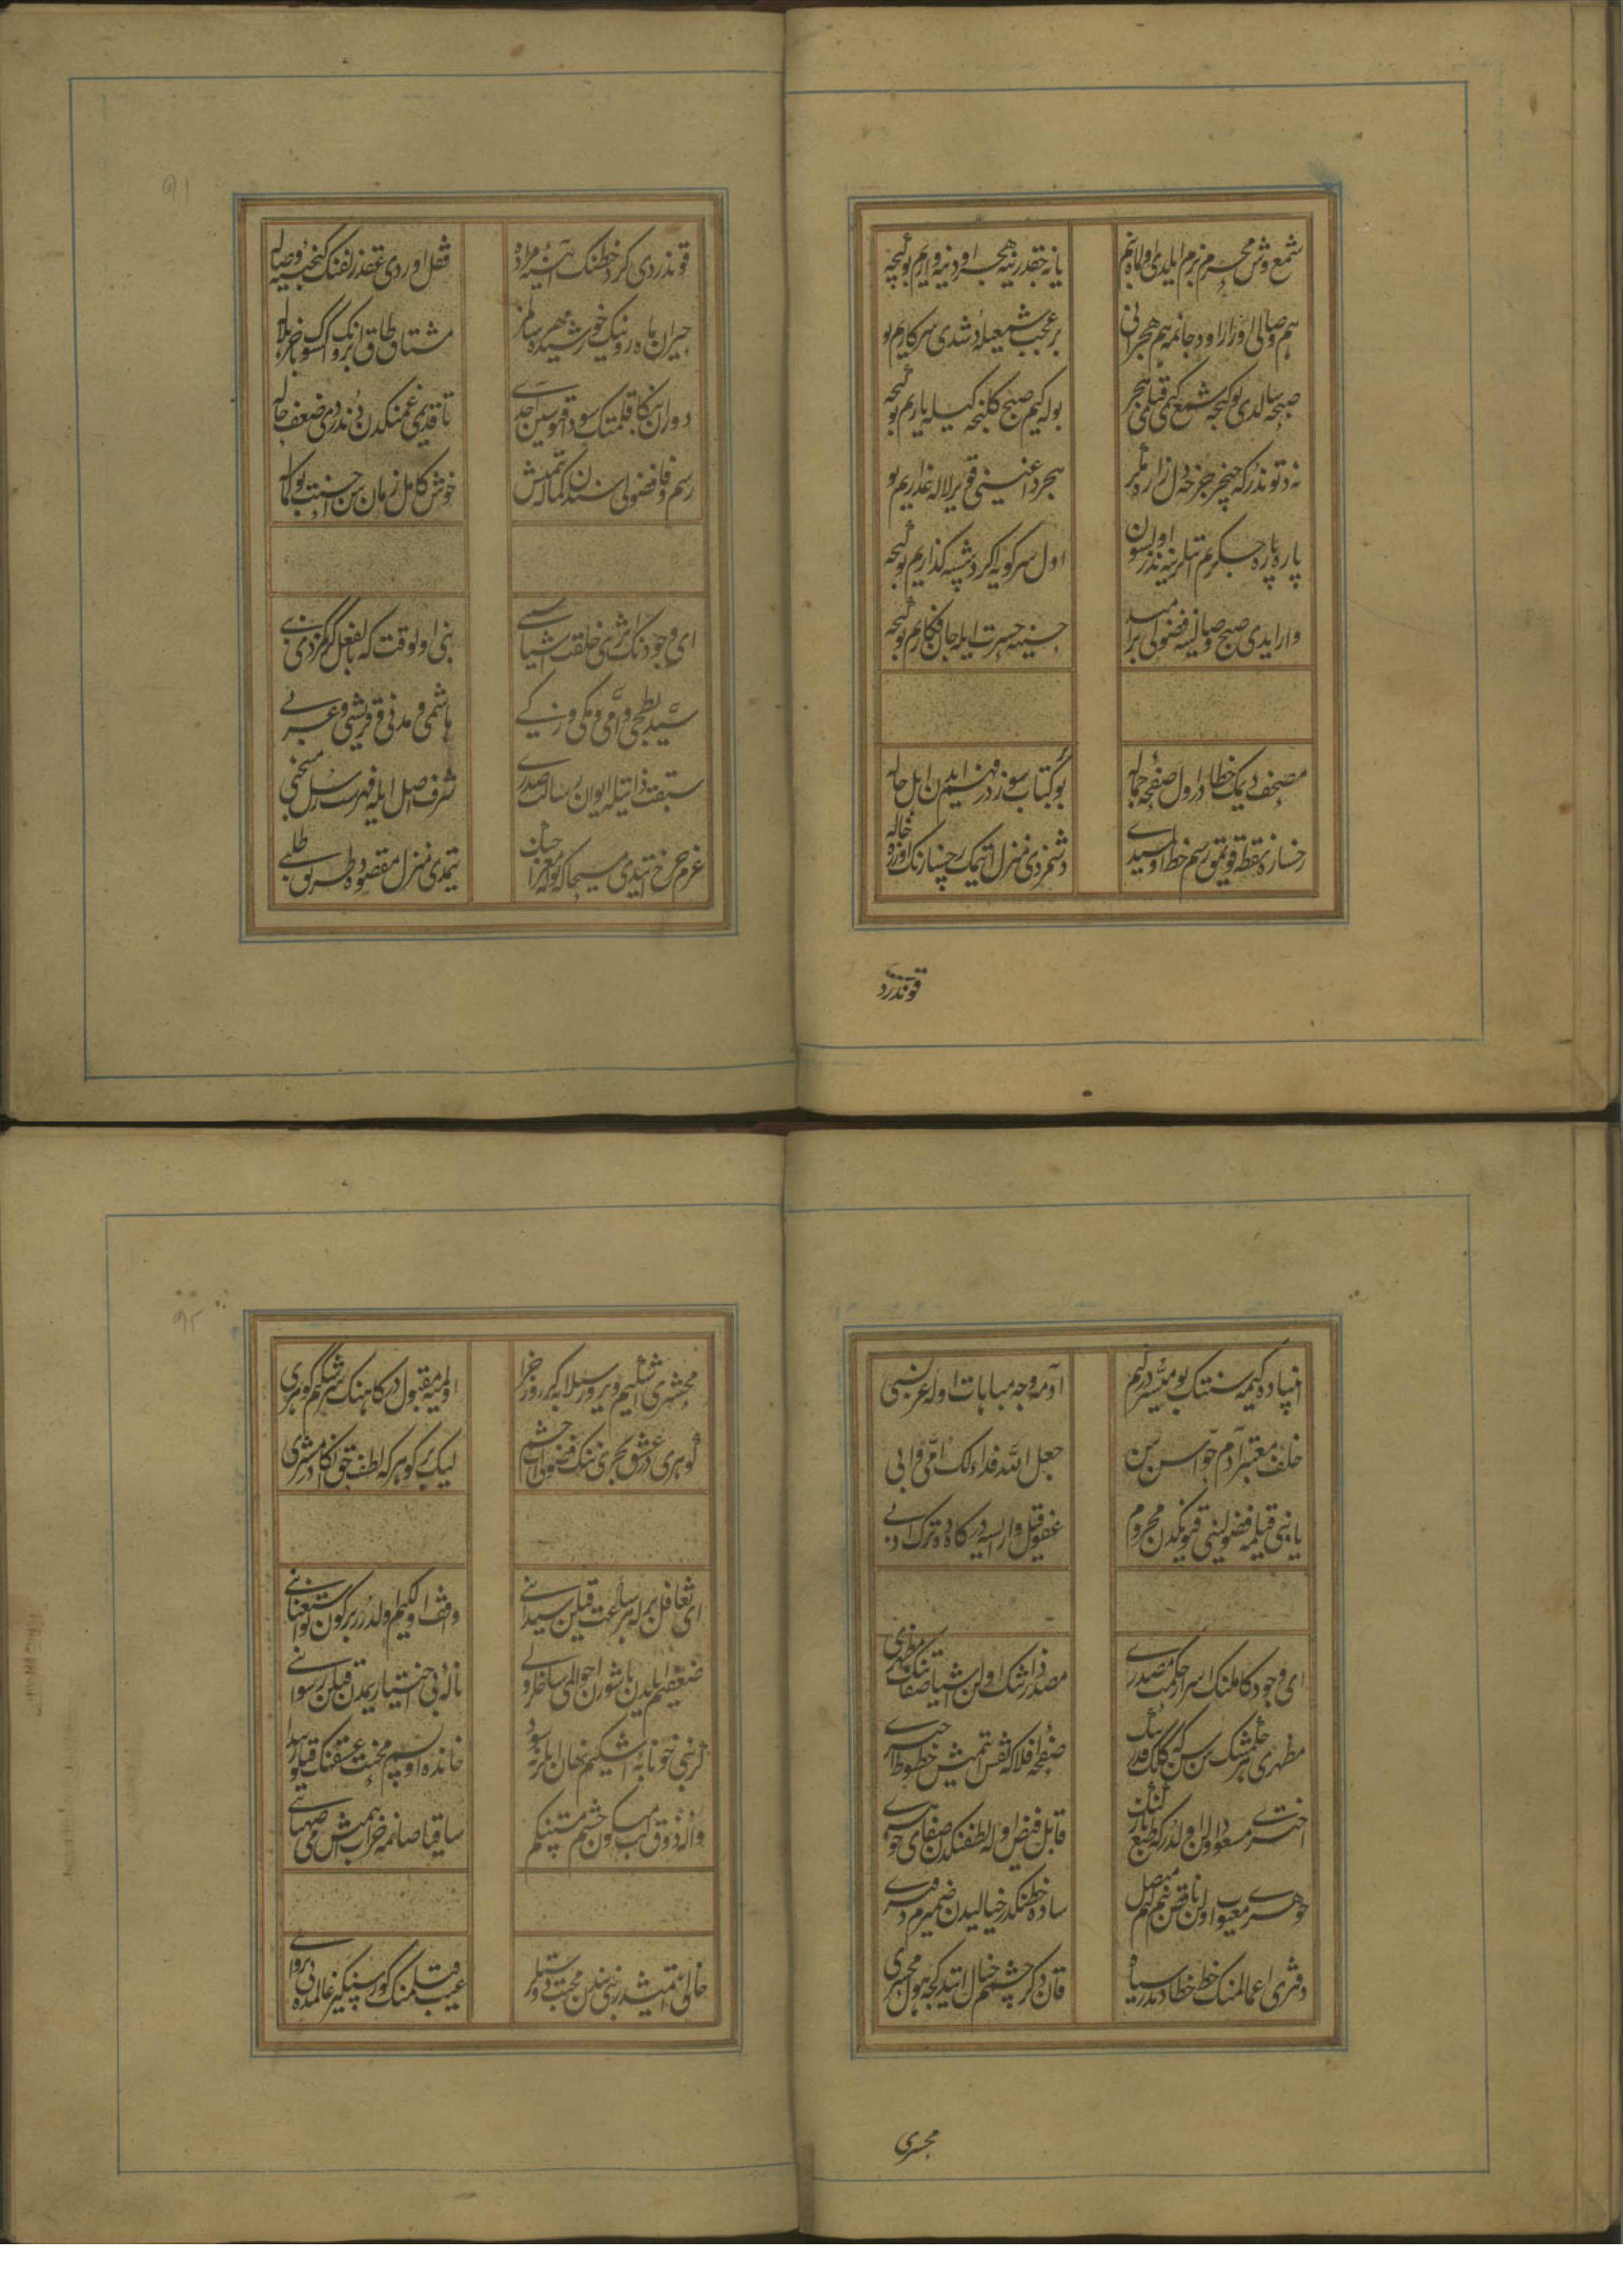 شمع وش محرم بزم ایلدی اول ماه بنم
یانه جقدر ینه هجر اودینه وارم بو گیجه
هم وصالی اورر اود جانمه هم هجرانی
بر عجب شمعیله دوشدی سر کارم بو
صبحه سالدی بو گیجه شمع کبی قتلمی هجر
بوله کیم صبح گلنجه گیله یارم بو گیجه
نه دتوندر که چیخر چرخه دل زارم مگر
هجر داغینی قویر لاله عذارم بو
پاره پاره جگرم اتلرینه نذر اولسون
اول سر کویه اگر دوشسه گذارم بو گیجه
وار ایدی صبح وصالینه فضولی امید
حسرت ایله جان فکارم بو گیجه
مصحف دیمک خطادر اول صفحه جماله
بو کتاب سوزدر فهم ایدن اهل حاله
رخساره نقطه قویمق رسم خط اولسیدی
دشمزدی منزل اتیمک رخسارنک اوزره خاله
قوندردی
٩١
قوندردی گرد خطنک آئینه مراده
قفل اوردی عقد زلفنک گنجینه وصاله
حیران ماه رونیک خورشید مهر سالمز
مشتاق طاق ابرونک باخمز هلاله
دوران قلمتک سود قویمش سنی
تا قدیمی غمنکدن دوندردی ضعف حاله
رسم وفا فضولی سندن کماله یتمیش
خوش کامل زمان سن احسنت بو کماله
ای وجودنک اثری خلقت اشیا سببی
نبی اول وقت که بالفعل گرکمزدی نبی
سید ابطحی و امی و مکی و زکی
هاشمی و مدنی و قریشی و عربی
سبقت ذاتیله ایوان رسالت صدری
شرف اصل ایله فهرست رسل منتخبی
عزم چرخ اتدی مسیحا که بوله معراجک
یتمدی منزل مقصوده طریق طلبی
انبیاده کیمه سنتک بو میسردر کیم
آدمه وجه مباهات اوله عز نسبی
خلف معتبر آدم و حوا سن سن
جعل الله فداء لک امی و ابی
یا نبی قیلمه فضولینی قپونکدن محروم
عفو قیل وار ایسه درکاهده ترک ادبی
ای وجود کاملنک اسرار حکمت مصدری
مصدر ذاتنک اولن اشیا صفاتنک مظهری
مظهری هر حکمتنک سن سن که کلک قدرتنک
صفحه افلاکه نقش اتمیش خطوط اختری
اختری مسعود اولن اولدر که طبع پاکنک
قابل فیض اوله لطفنکدن صفای جوهری
جوهری معیوب اولن ناقص بنم کیم متصل
ساده خطنکدر خیالیدن ضمیرم دفتری
دفتری اعمالمنک خط خطادندر سیاه
قان دوکر چشمم خیال اتدیکجه هول محشری
محشری
٩٢
محشری اشکم ویرور سیلابه گر روز جزا
اولمیه مقبول درکاهنک سرشکم گوهری
گوهری در عشق بحری ننک فضولی آب چشم
لیک بر گوهر که لطف حق انکادر مشتری
ای تغافل برله هر ساعت قیلن شیدا بنی
واقف اول کیم اولدورر بر گون بو استغنا بنی
ضعفم ایلدن یاشورن احوالمی ساخلر ولی
ناله بی اختیاریمدن قیلن رسوا بنی
گر بنی خونابه اشکم نهان ایلر نه سود
محنت عشقنک قیلور پیدا بنی
واله ذوق لب میگون و چشم مستنکم
ساقیا صانمه خراب اتمش می صهبا بنی
خالی اتمیشدر بنی مندن محبت دوستلر
عیب قیلمنک گورسنکیز عالمده بی پروا بنی